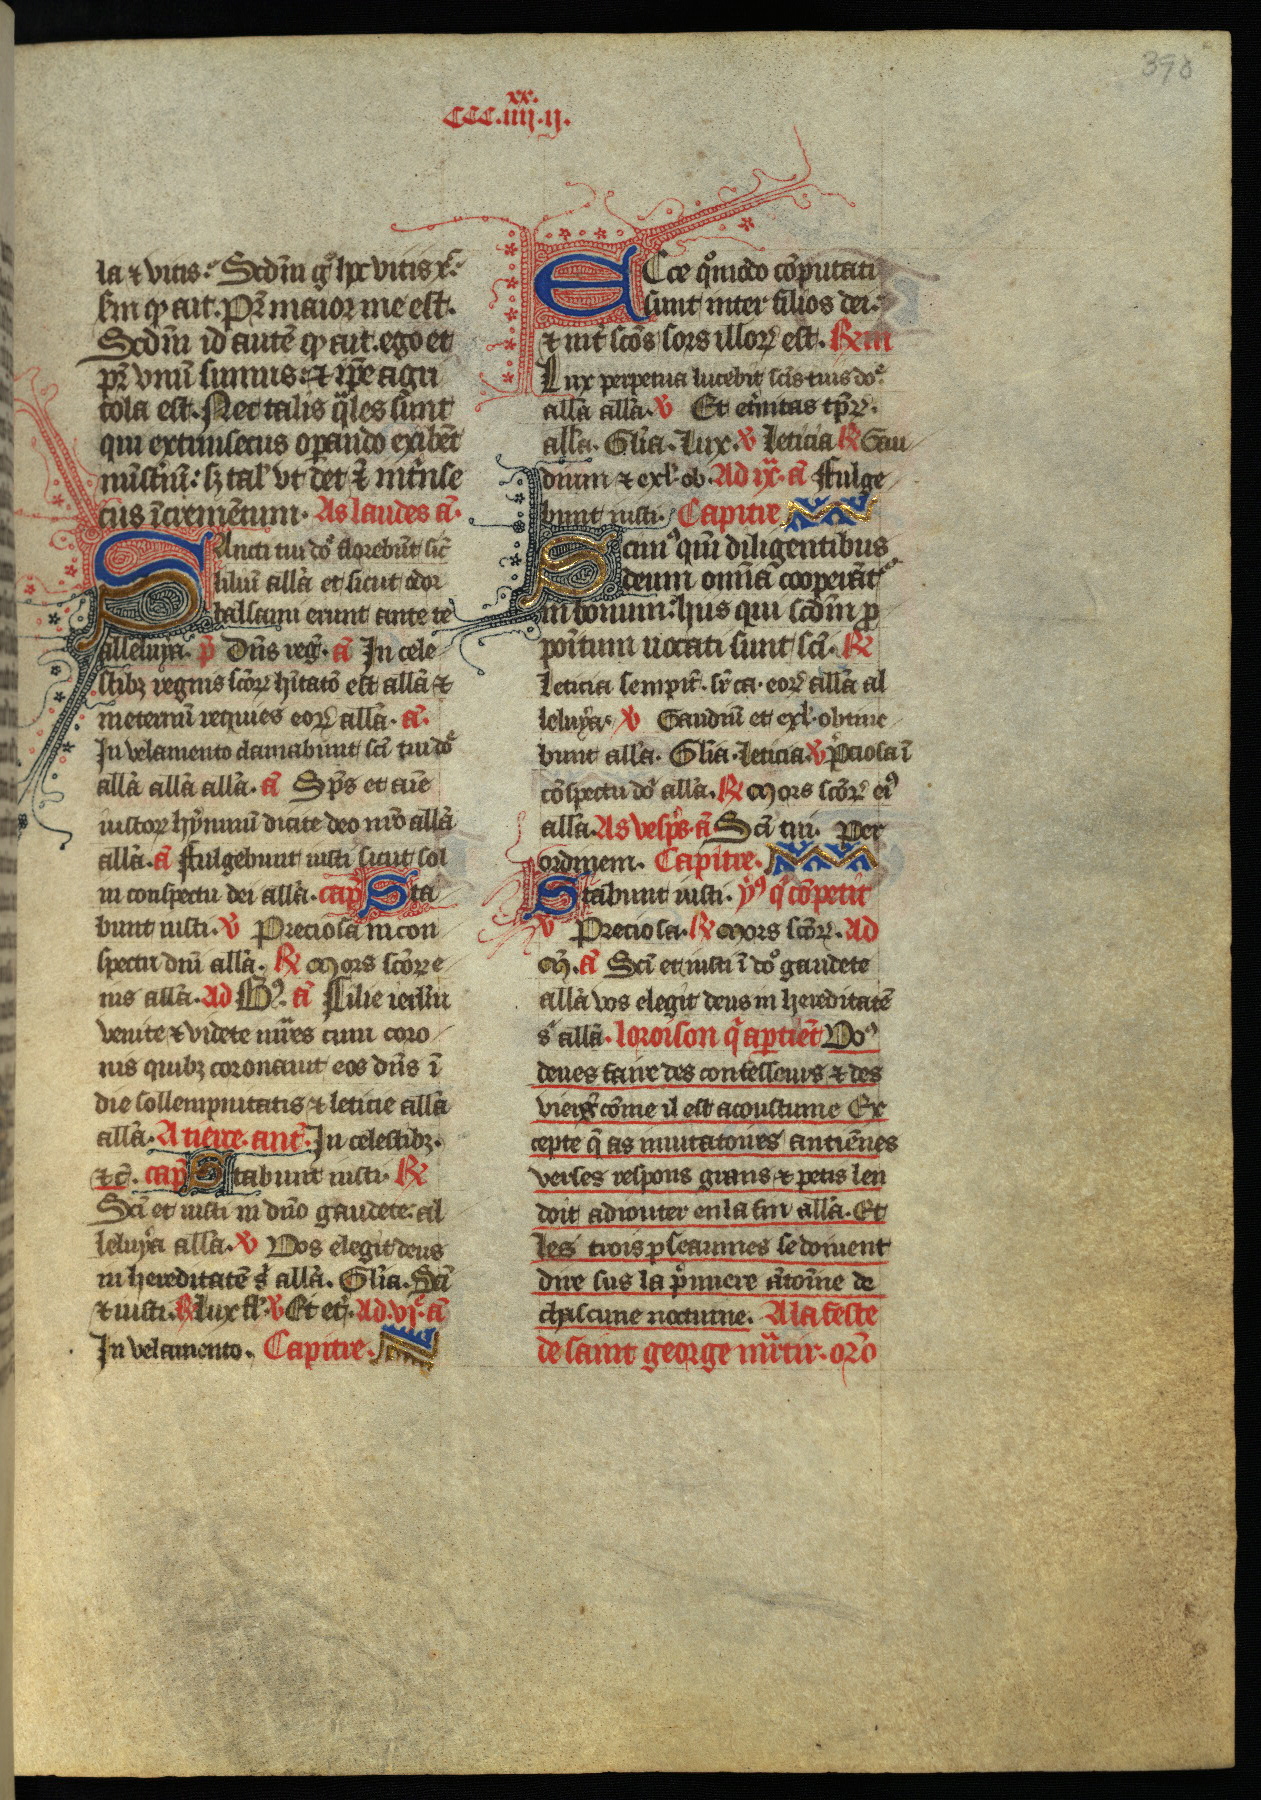 390
xx.
CCC.iiij.ij.
la ⁊ vitis. Scdm gͦ hec vitis xͬ.
sm qͥ ait. Pr̄ maior me est.
Scdm id autē qͥ ait. ego et
pr̄ vnū sumus: ⁊ ip̄e agri
cola est. Nec talis q̄les sunt
qui extrinsecus oꝑando exibēt
mīstiū: sꝫ tal' vt det ⁊ īt̄nse
cus īcremētum. As laudes ā.
Sancti tui dōe florebūt sic̄
liliū allā et sicut odor
balsami erunt ante te
alleluya. p̄ Dn̄s reḡ. ā In cele
stibꝫ regnis scōꝝ hītatō est allā ⁊
ineternū requies eoꝝ allā. ā.
In velamento clamabunt sc̄i tui dōe
allā allā allā. ā Sp̄s et aīe
iustoꝝ hymnū dicite deo nr̄o allā
allā. ā Fulgebunt iusti sicut sol
in conspectu dei allā. cap̄ Sta
bunt iusti. v̄ Preciosa in con
spectu dnī allā. ℟ Mors scōꝝ e
ius allā. Ad Bͥ. ā Filie ierlm̄
venite ⁊ videte mr̄es cum coro
nis quibꝫ coronauit eos dn̄s ī
die sollempnitatis ⁊ leticie allā
allā. A tierce. ant̄. In celestibꝫ.
⁊c̄. cap̄ Stabunt iusti. ℟
Sc̄i et iusti in dn̄o gaudete. al
leluya allā. v̄ Vos elegit deus
in hereditatē s̄ allā. Glīa. Sc̄i
⁊ iusti. ℟ Lux ꝑ'. v̄ Et et̄. Ad vjͤ. ā
In velamento. Capitre.
Ecce qͦmodo cōputati
sunt inter filios dei.
⁊ int̄ scōs sors illoꝝ est. ℟ em
Lux perpetua lucebit scīs tuis dōe.
allā allā. v̄ Et et̄nitas tp̄ꝝ.
allā. Glīa. Lux. v̄ Leticia ℟ Gau
dium ⁊ exl'. ob. Ad ix. ā Fulge
bunt iusti. Capitre
Scimꝰ qm̄ diligentibus
deum omīa cooperāt
in bonum: hiis qui scdm ꝓ
poītum uocati sunt scī. ℟
Leticia sempit̄. sr̄ ca. eoꝝ allā al
leluya. v̄ Gaudiū et exl'. obtine
bunt allā. Glīa. Leticia. v̄ Pͨciosa ī
cōspectu dōe allā. ℟ Mors scōꝝ eiꝰ
allā. As vesp̄s. ā Sc̄i tui. Per
ordinem. Capitre.
Stabunt iusti. yͫꝰ qͥ cōpetit
v̄ Preciosa. ℟ Mors scōꝝ. Ad
m̄. ā Sc̄i et iusti ī dōo gaudete
allā vos elegit deus in hereditatē
s̄ allā. loroison q̄ aꝑtiēt Voꝰ
deues faire des confesseurs ⁊ des
vierḡ cōme il est acoustume Ex
cepte q̄ as inuitatoires antiēnes
verses respons grans ⁊ petis len
doit adiouter en la fin allā. Et
les trois pseaumes se doiuent
dire sus la pͥmiere ātoīne de
chascune nocturne. A la feste
de saint george mr̄tir. oro